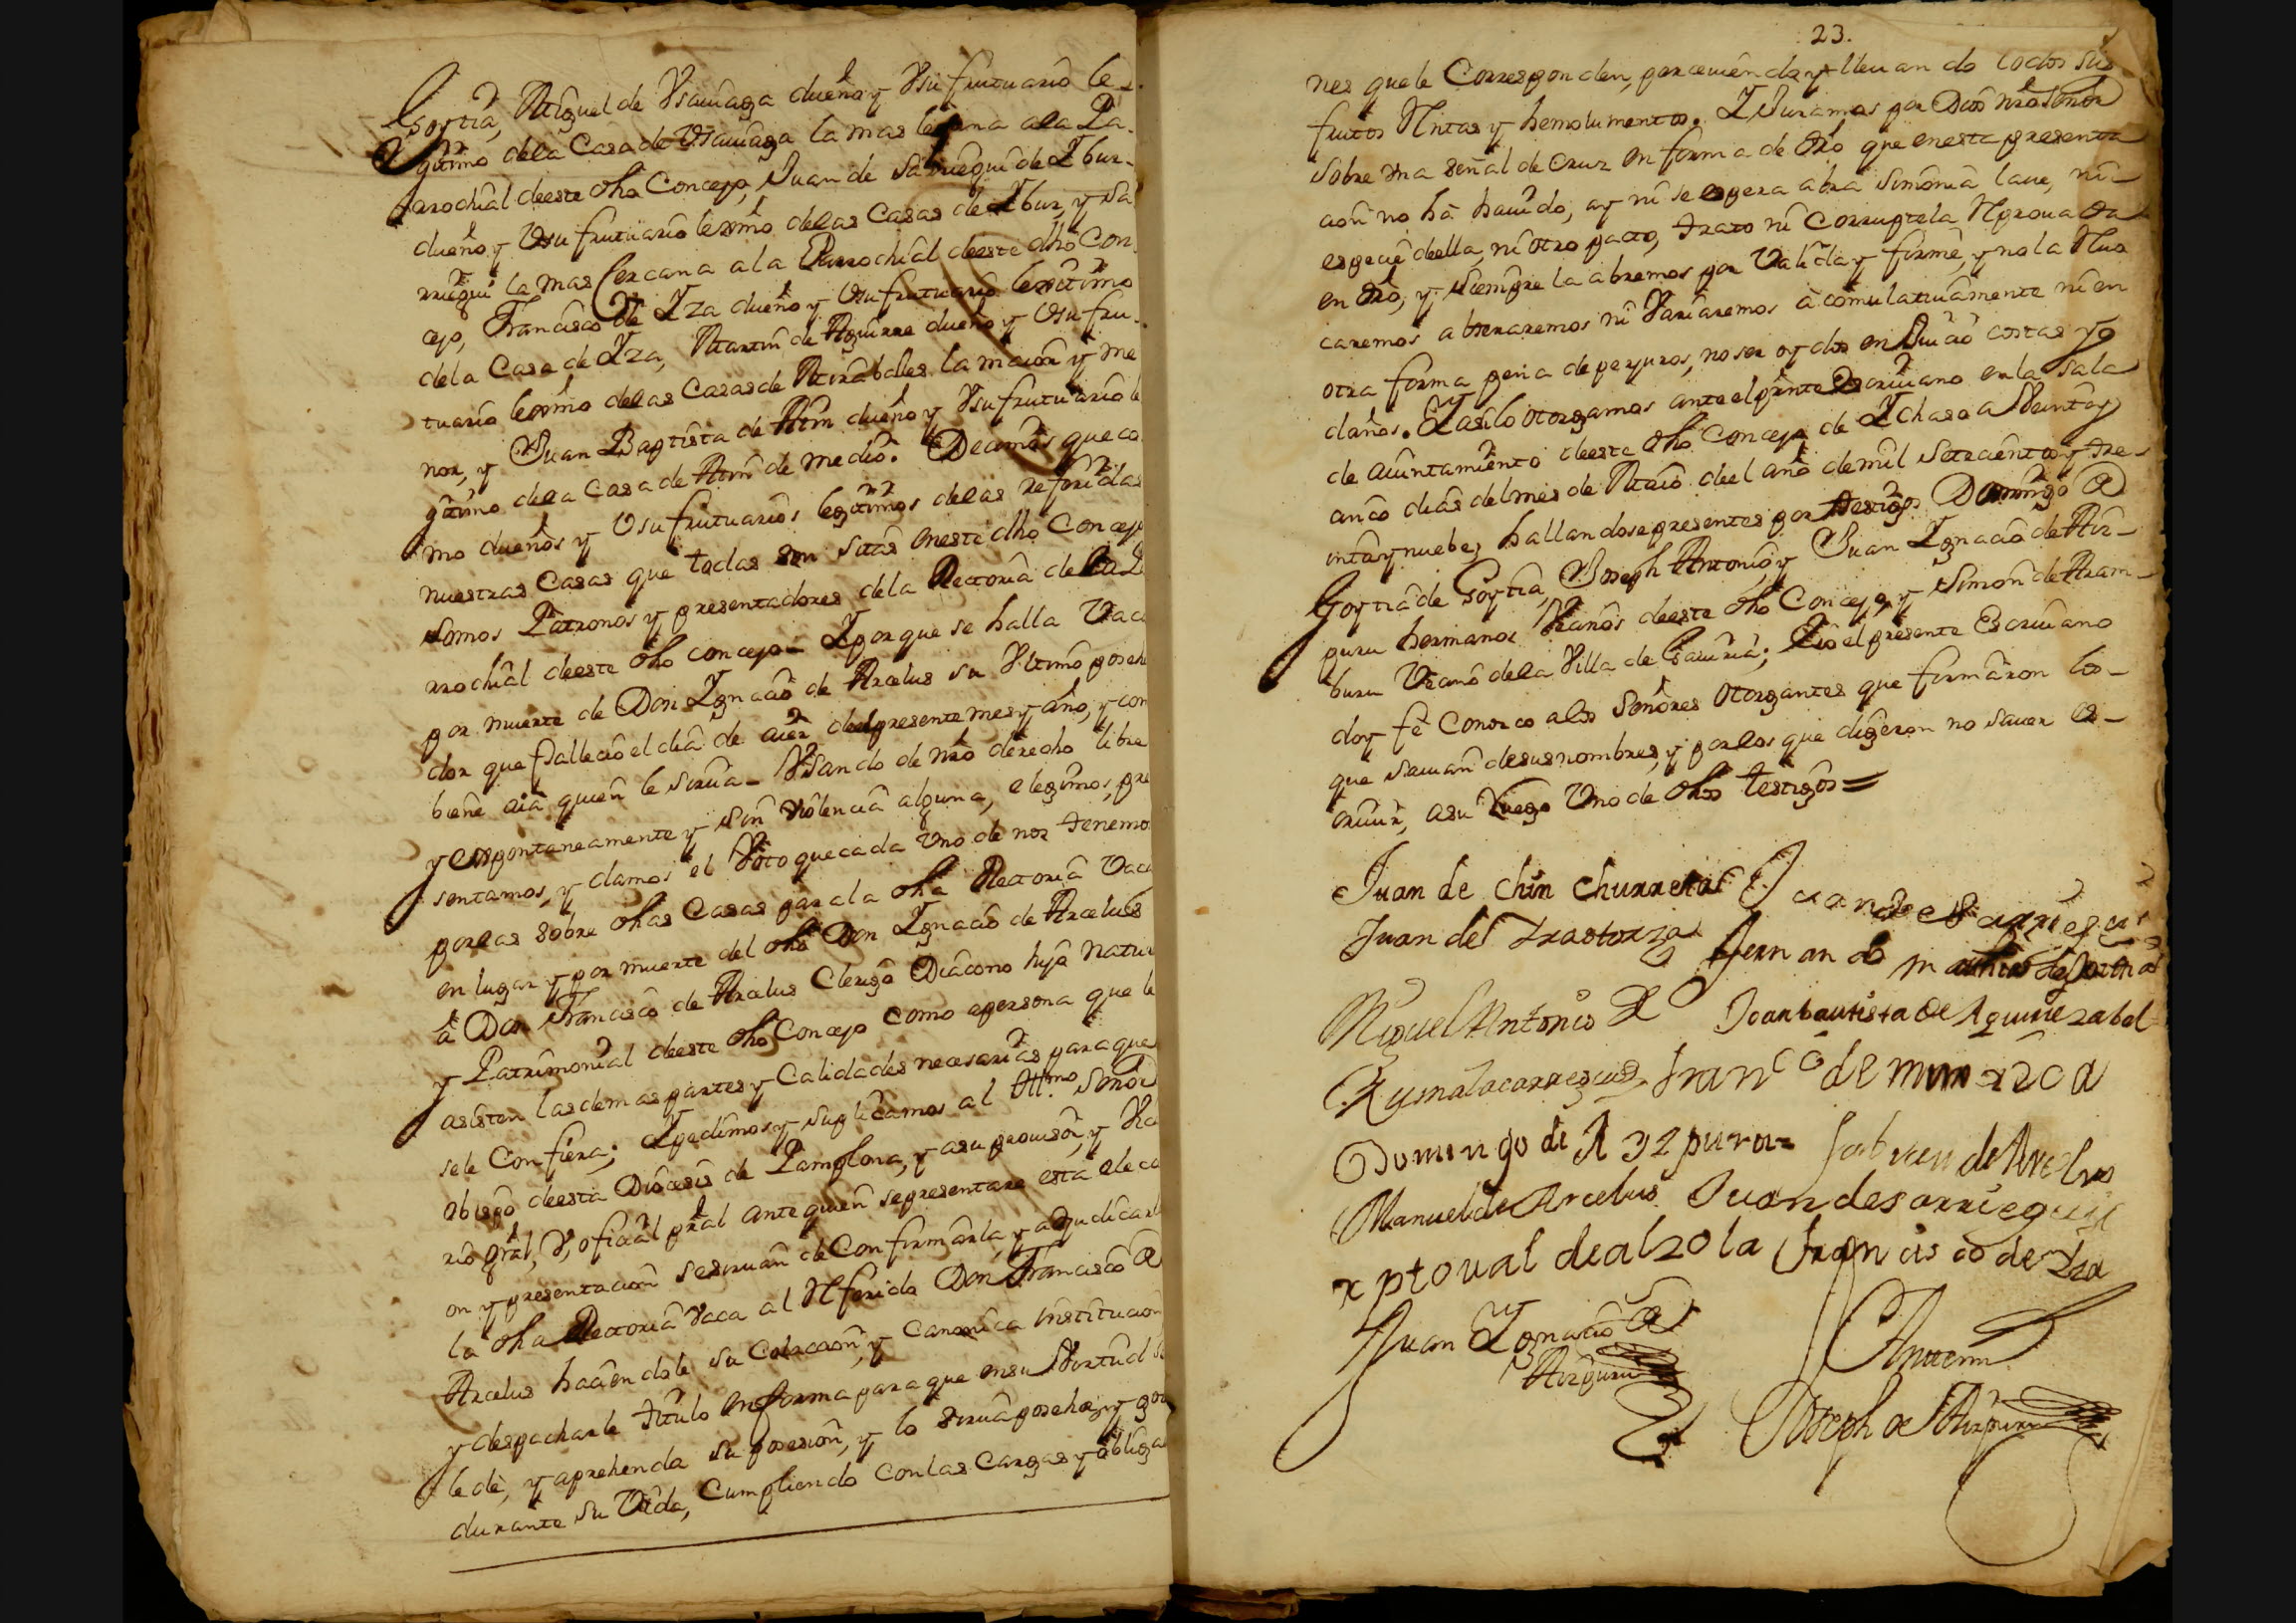 Gortia, Miguel de Vsauiaga dueño y Vsufrutuario le-
gitimo dela Casa de Vsauiaga la mas lexana ala Pa-
rrochial deeste dho Concejo, Juan de Sarriegui de Ybur-
dueño y Vsufrutuario lexmo delas Casas de Ybur, y Sa
rriegui la mas Cercana ala Parrochial deeste dho Con-
cejo, Francisco de Yza dueño y Vsufrutuario lexitimo
dela Casa de Yza, Martin de Aguirre dueño y Vsufru-
tuario lexmo delas Casas de la maior y me
nor, y Juan Baptista de dueño y Vsufrutuario le
gitimo dela Casa de de medio. Decimos que co
mo dueños y Vsufrutuarios legitimos delas referidas
nuestras Casas que todas son sitas eneste dho Concejo
somos Patronos y presentadores dela Rectoria dela Pa
rrochial deeste dho concejo - Y porque se halla Vaca
por muerte de Don Ygnacio de Arcelus su Vltimo posehe
dor que fallecio el dia de aier deel presente mes y año, y con
biene aia quien le sirua - Vsando de nro derecho libre
y espontaneamente y sin violencia alguna, elegimos, pre
sentamos, y damos el Voto que cada Vno de nos tenemos
por las sobre dhas Casas para la dha Rectoria Vaca
en lugar y por muerte del dho Don Ygnacio de Arcelus
â Don Francisco de Arcelus Clerigo Diacono hijo Natur
y Patrimonial deeste dho Concejo como apersona que le
asisten las demas partes y Calidades necesarias para que
sele Confiera; Y pedimos y suplicamos al Yllmo Señor
Obispo deesta Diocesis de Pamplona, y asu prouisor, y Vica
rio gral, V, oficial pral ante quien se presentare esta elecci
on y presentacion se siruan de Confirmarla, y adjudicarle
la dha Rectoria Vaca al Referido Don Francisco de
Arcelus haciendole su Colacion, y Canonica Ynstitucion
y despacharle titulo en forma para que en su Virtud se
le dé, y aprehenda su posesion, y lo sirua posehea, y goze
durante su Vida, Cumpliendo con las Cargas y obligacio
23.
nes que le Corresponden, perceuiendo y lleuando todos sus
frutos Rentas y hemolumentos. Y Juramos por Dios nro Señor
sobre vna señal de Cruz en forma de dro que enesta presenta
cion no hà hauido, ay ni se espera abra simonia laue, ni-
especie deella, ni otro pacto, trato ni Corruptela Reprouada
en dro, y siempre la abremos por Valida y firme, y no la Reuo
caremos alteraremos ni Variaremos à comulatiuamente ni en
otra forma pena de perjuros, no ser oydos en Juicio costas y
daños. Y asi lo otorgamos ante el prnte Escriuano en la Sala
de aiuntamiento deeste dho Concejo de Ychaso a Veinte y
cinco dias del mes de Maio deel año de mil Setecientos y tre-
inta y nuebe, hallandose presentes por testigos Domingo de
Gortia de Gortia, Joseph Antonio y Juan Ygnacio de Air-
puru hermanos Vecinos deeste dho Concejo, y Simon de Aram-
buru Vecino dela Villa de Gauiria; Y io el presente Escriuano
doy fé Conozco alos Señores Otorgantes que firmaron los-
que sauian desus nombres, y por los que digeron no sauer es-
criuir, asu Ruego Vno de dhos testigos =
Juan de chin churreta Juan de Sarriegui
Juan de Irastorza Fernando Mathias de Gortia
Miguel Antonio de Joan bautista de Aguirre zabal
Zumalacarregui Franco de mun
Domingo de Air puru Gabriel de Arcelus
Manuel de Arcelus Juan de sarriegui
xptoual de alzola Francisco de Iza
Juan Ygnacio de
Airpuru
Ante mi
Joseph de Airpuru